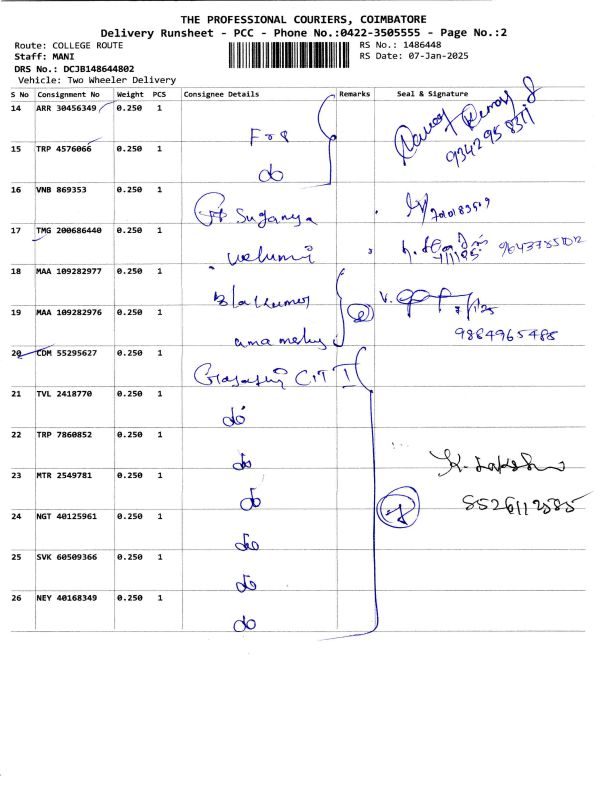 THE PROFESSIONAL COURIERS, COIMBATORE
Delivery Runsheet - PCC - Phone No.:0422-3505555 - Page No.:2
Route: COLLEGE ROUTE
RS No.: 1486448
Staff: MANI
RS Date: 07-Jan-2025
DRS No.: DCJB148644802
Vehicle: Two Wheeler Delivery
S No Consignment No Weight PCS Consignee Details Remarks Seal & Signature
14 ARR 30456349 0.250 1
15 TRP 4576066 0.250 1 do
16 VNB 869353 0.250 1 Suganya
17 TMG 200686440 0.250 1
18 MAA 109282977 0.250 1
19 MAA 109282976 0.250 1
9884965485
20 CDM 55295627 0.250 1 CIT
21 TVL 2418770 0.250 1 do
22 TRP 7860852 0.250 1 do
23 MTR 2549781 0.250 1 do
24 NGT 40125961 0.250 1 do
25 SVK 60509366 0.250 1 do
26 NEY 40168349 0.250 1 do